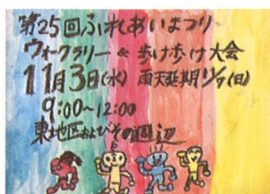 第25回ふれあいまつり
ウォークラリー & 歩け歩け大会
11月3日(水) 雨天延期11/7(日)
9:00～12:00
東地区およびその周辺